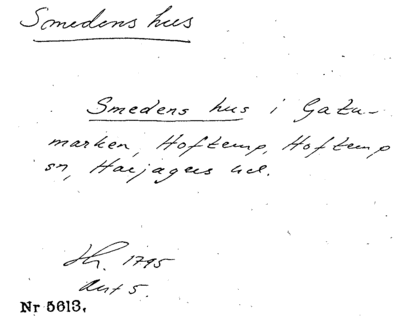 Smedens hus
Smedens hus i Gatu-
marken, Hofterup, Hofterup
sn, Harjagers hd.
Lh. 1795
Akt 5.
Nr 5613.